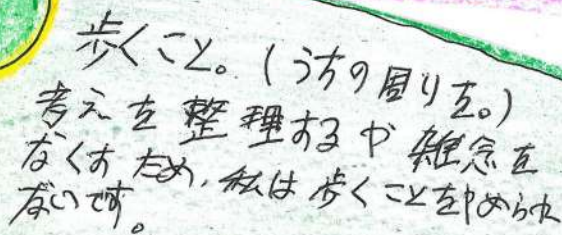 歩くこと。(うちの周りを。)
考えを整理するや雑念を
なくすため、私は歩くことをやめられ
ないです。